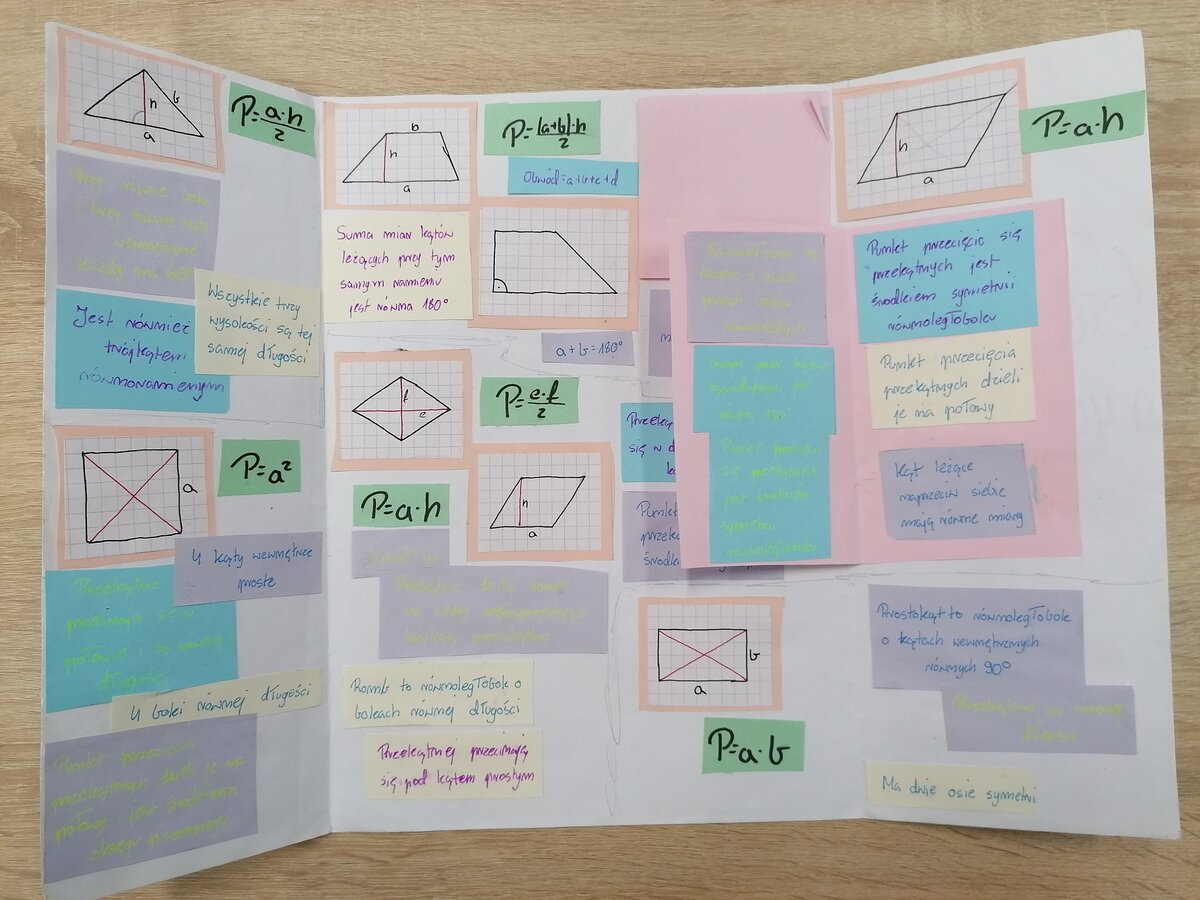 h
b
a
P=a·h/2
Trzy równe boki
i trzy równe kąty
wewnętrzne
każdy ma 60°
Wszystkie trzy
wysokości są tej
samej długości
Jest również
trójkątem
równoramiennym
a
P=a²
4 kąty wewnętrzne
proste
Przekątne
przecinają się
połowie i są równej
długości
4 boki równej długości
Punkt przecięcia
przekątnych dzieli je na
połowy i jest środkiem
okręgu
b
h
a
P=(a+b)·h/2
Obwód=a+b+c+d
Suma miar kątów
leżących przy tym
samym ramieniu
jest równa 180°
a+b=180°
f
e
P=e·f/2
P=a·h
h
a
Obwód=4a
Przekątne dzielą romb
na cztery
trójkąty prostokątne
Romb to równoległobok o
bokach równej długości
Przekątnej przecinają
się pod kątem prostym
Przekąt
się w
Punkt
przeką
środki
Równoległobok to
trapez o dwóch
parach boków
równoległych
Suma miar kątów
sąsiadujących jest
równa 180°
Punkt przecięcia
się przekątnych
jest środkiem
symetrii
równoległoboku
h
a
P=a·h
Punkt przecięcia się
przekątnych jest
środkiem symetrii
równoległoboku
Punkt przecięcia
przekątnych dzieli
je na połowy
Kąt leżące
naprzeciw siebie
mają równe miary
b
a
P=a·b
Prostokąt to równoległobok
o kątach wewnętrznych
równych 90°
Przekątne są równej
długości
Ma dwie osie symetrii